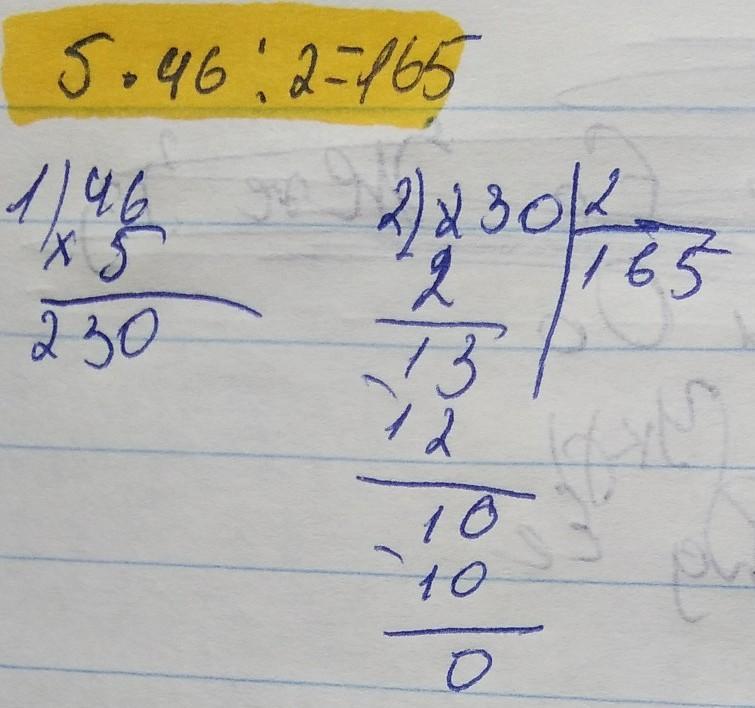 5 · 46 : 2 = 165
1) 46
× 5
230
2) 230 | 2
2 | 165
13
- 12
10
- 10
0